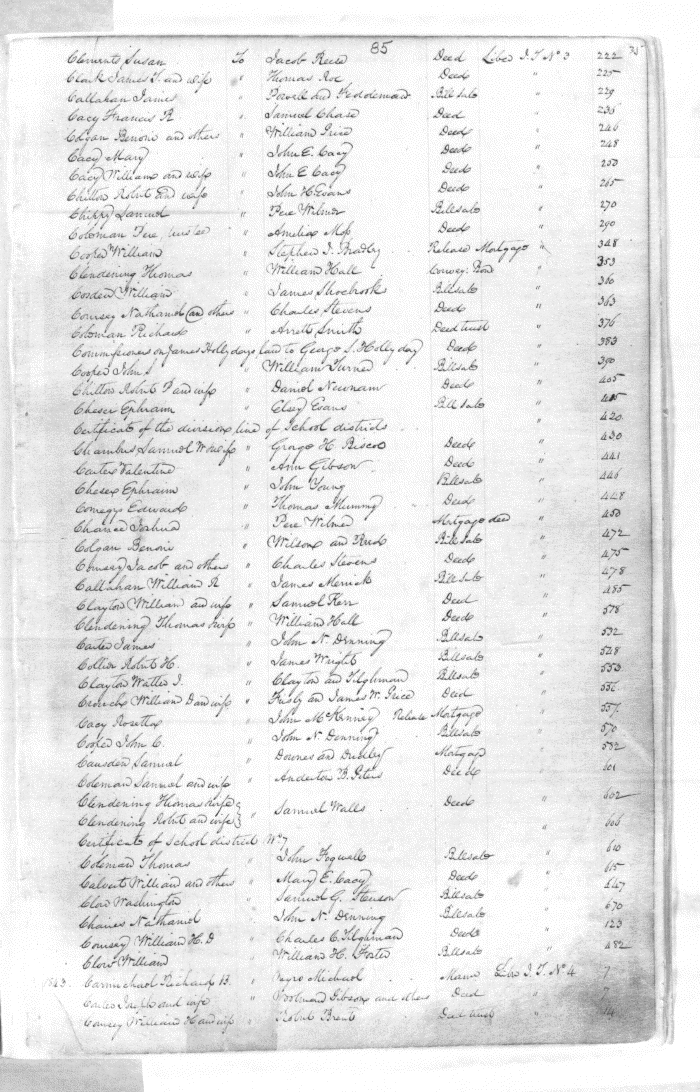 85
Clements Susan To Jacob Reese Deed Liber J.T No 3 222
Clark James T. and wife " Thomas Roe Deed " 225
Callahan James " Powell and Feddeman Bill Sale " 229
Cacy Francis R " Samuel Chase Deed " 236
Colgan Benoni and others " William Price Deed " 246
Cacy Mary " John E. Cacy Deed " 248
Cacy William and wife " John E Cacy Deed " 250
Chilton Robert and wife " John H. Evans Deed " 265
Chippy Samuel " Pere Wilmer Billsale " 270
Coleman Pere trustee " Amelia Moss Deed " 290
Cooper William " Stephen J. Bradley Release Mortgage " 348
Clendening Thomas " William Hall Convey. Bond " 353
Cosden William " James Shocbrooks Billsale " 360
Coursey Nathaniel and others " Charles Stevens Deed " 363
Coleman Richard " Arrett Smith Deed trust " 376
Commissioners on James Hollydays land to George S. Hollyday Deed " 383
Cooper John S " William Turner Billsale " 390
Chilton Robert P and wife " Daniel Newnam Deed " 405
Cheser Ephraim " Elsey Evans Bill Sale " 415
Certificate of the division line of School districts " 420
Chambers Samuel W & wife " George H Biscoe Deed " 430
Carter Valentine " Ann Gibson Deed " 441
Cheser Ephraim " John Young Billsale " 446
Comegys Edward " Thomas Mummy Deed " 448
Chance Joshua " Pere Wilmer Mortgage deed " 450
Colgan Benoni " Wilson and Reed Bill Sale " 472
Coursey Jacob and others " Charles Stevens Deed " 475
Callahan William R " James Merrick Bill Sale " 478
Clayton William and wife " Samuel Kerr Deed " 485
Clendening Thomas & wife " William Hall Deed " 578
Carter James " John N. Denning Billsale " 532
Collier Robert H. " James Wright Billsale " 528
Clayton Walter J. " Clayton and Tilghman Billsale " 553
William D and wife " Kirby and James W. Price Deed " 556
Cacy Rosetta " John McKenney Release Mortgage " 557
Cooper John C. " John N Denning Billsale " 570
Causden Samuel " Downes and Dudley Mortgage " 572
Coleman Samuel and wife " Anderton B. Peters Deed " 601
Clendening Thomas & wife }
Clendening Robert and wife } " Samuel Walls Deed " 602
Certificate of School district No 7 " 606
Coleman Thomas " John Fogwell Billsale " 610
Calvert William and others " Mary E. Cacy Deed " 615
Clow Washington " Samuel G. Billsale " 647
Chaires Nathaniel " John N. Denning Billsale " 670
Coursey William H. D " Charles C. Tilghman Deed " 123
Clow William " William H. Foster Billsale " 482
1843. Carmichael Richard B. " Negro Michael Manu Liber J.T. No 4 7
Carter Joseph and wife " Woolman Gibson and others Deed " 7
Coursey William H and wife " Robert Brent Deed trust " 14